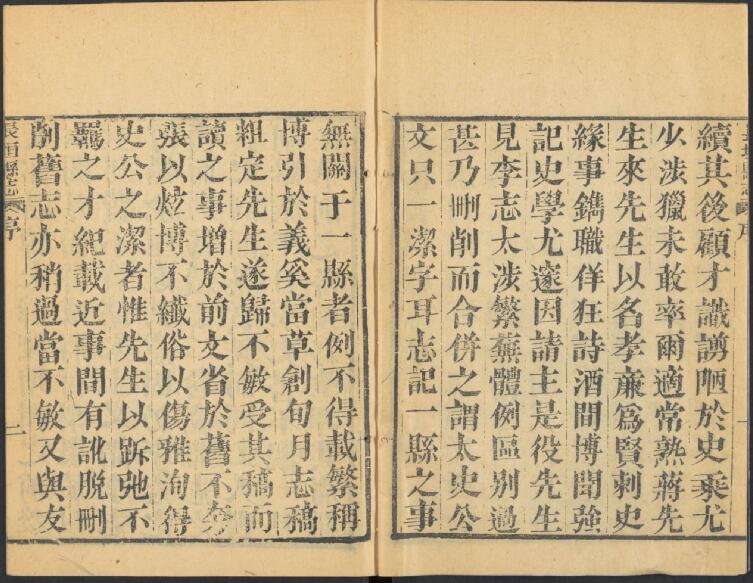 續其後顧才識謭陋於史乘尤
少涉獵未敢率爾適常熟蔣先
生來先生以名孝亷爲賢刺史
緣事鐫職佯狂詩酒間博聞強
記史學尤邃因請主是役先生
見李志太涉繁蕪體例區別過
甚乃刪削而合併之謂太史公
文只一潔字耳志記一縣之事
無關于一縣者例不得載繁稱
博引於義奚當草創旬月志稿
粗定先生遂歸不敏受其稿而
讀之事增於前文省於舊不夸
張以炫博不纖俗以傷雅洵得
史公之潔者惟先生以跅弛不
羈之才紀載近事間有訛脫刪
削舊志亦稍過當不敏又與友
長垣縣志 序 二